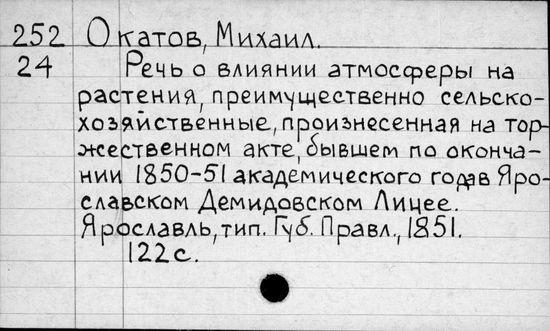 252 Окатов, Михаил.
24 Речь о влиянии атмосферы на
растения, преимущественно сельско-
хозяйственные, произнесенная на тор-
жественном акте, бывшем по оконча-
нии 1850-51 академического года в Яро-
славском Демидовском Лицее.
Ярославль, тип. Губ. Правл., 1851.
122 с.